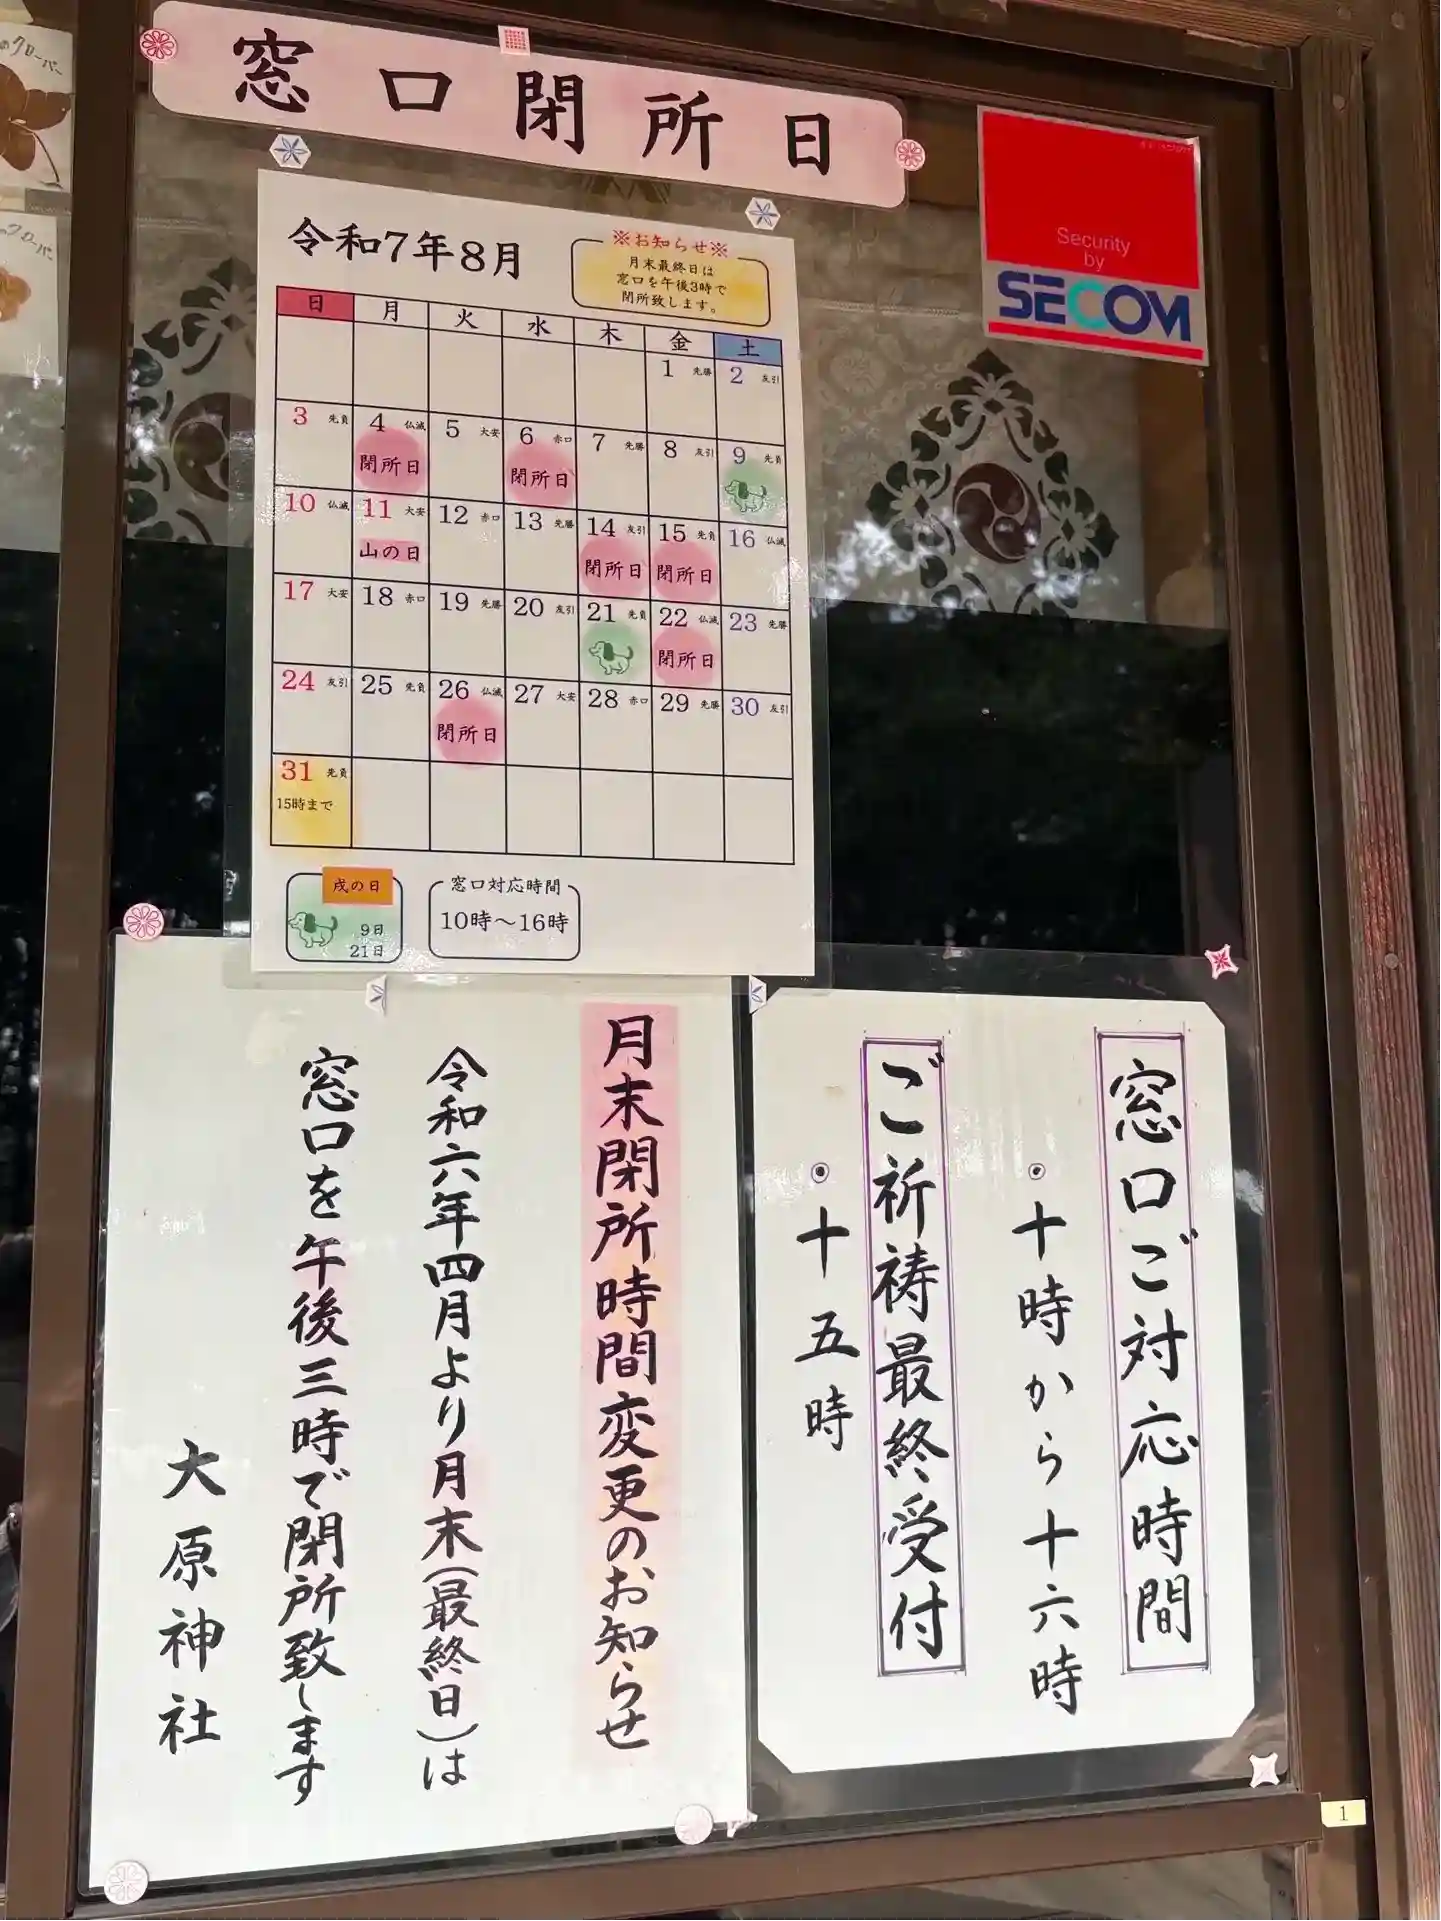 窓口閉所日
Security
by
SECOM
令和7年8月
※お知らせ※
月末最終日は
窓口を午後3時で
閉所致します。
日 月 火 水 木 金 土
1 先勝 2 友引
3 先負 4 仏滅 5 大安 6 赤口 7 先勝 8 友引 9 先負
閉所日 閉所日
10 仏滅 11 大安 12 赤口 13 先勝 14 友引 15 先負 16 仏滅
山の日 閉所日 閉所日
17 大安 18 赤口 19 先勝 20 友引 21 先負 22 仏滅 23 先勝
閉所日
24 友引 25 先負 26 仏滅 27 大安 28 赤口 29 先勝 30 友引
閉所日
31 先負
15時まで
戌の日
9日
21日
窓口対応時間
10時〜16時
窓口ご対応時間
・十時から十六時
ご祈祷最終受付
・十五時
月末閉所時間変更のお知らせ
令和六年四月より月末(最終日)は
窓口を午後三時で閉所致します
大原神社
1